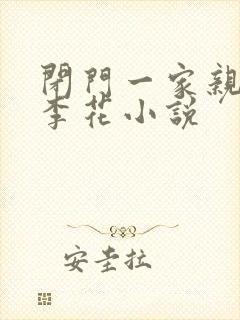 閉門一家親
李花小說
安圭拉